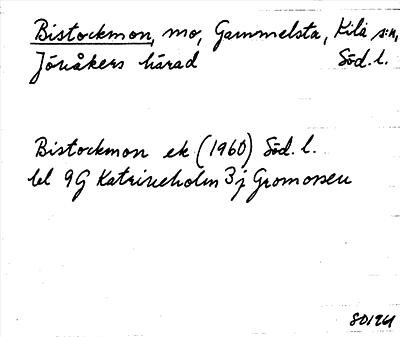 Bistockmon, mo, Gammelsta, Kila sn,
Jönåkers härad Söd. l.
Bistockmon ek (1960) Söd. l.
bl 9G Katrineholm 3j Gromossen